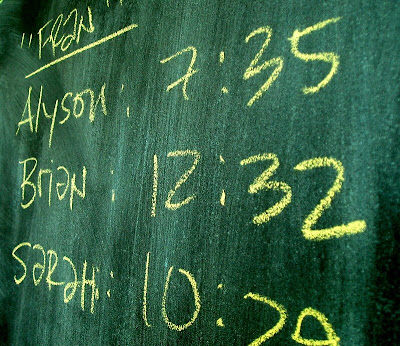 "Fran"
Alyson: 7:35
Brian: 12:32
Sarah: 10:29